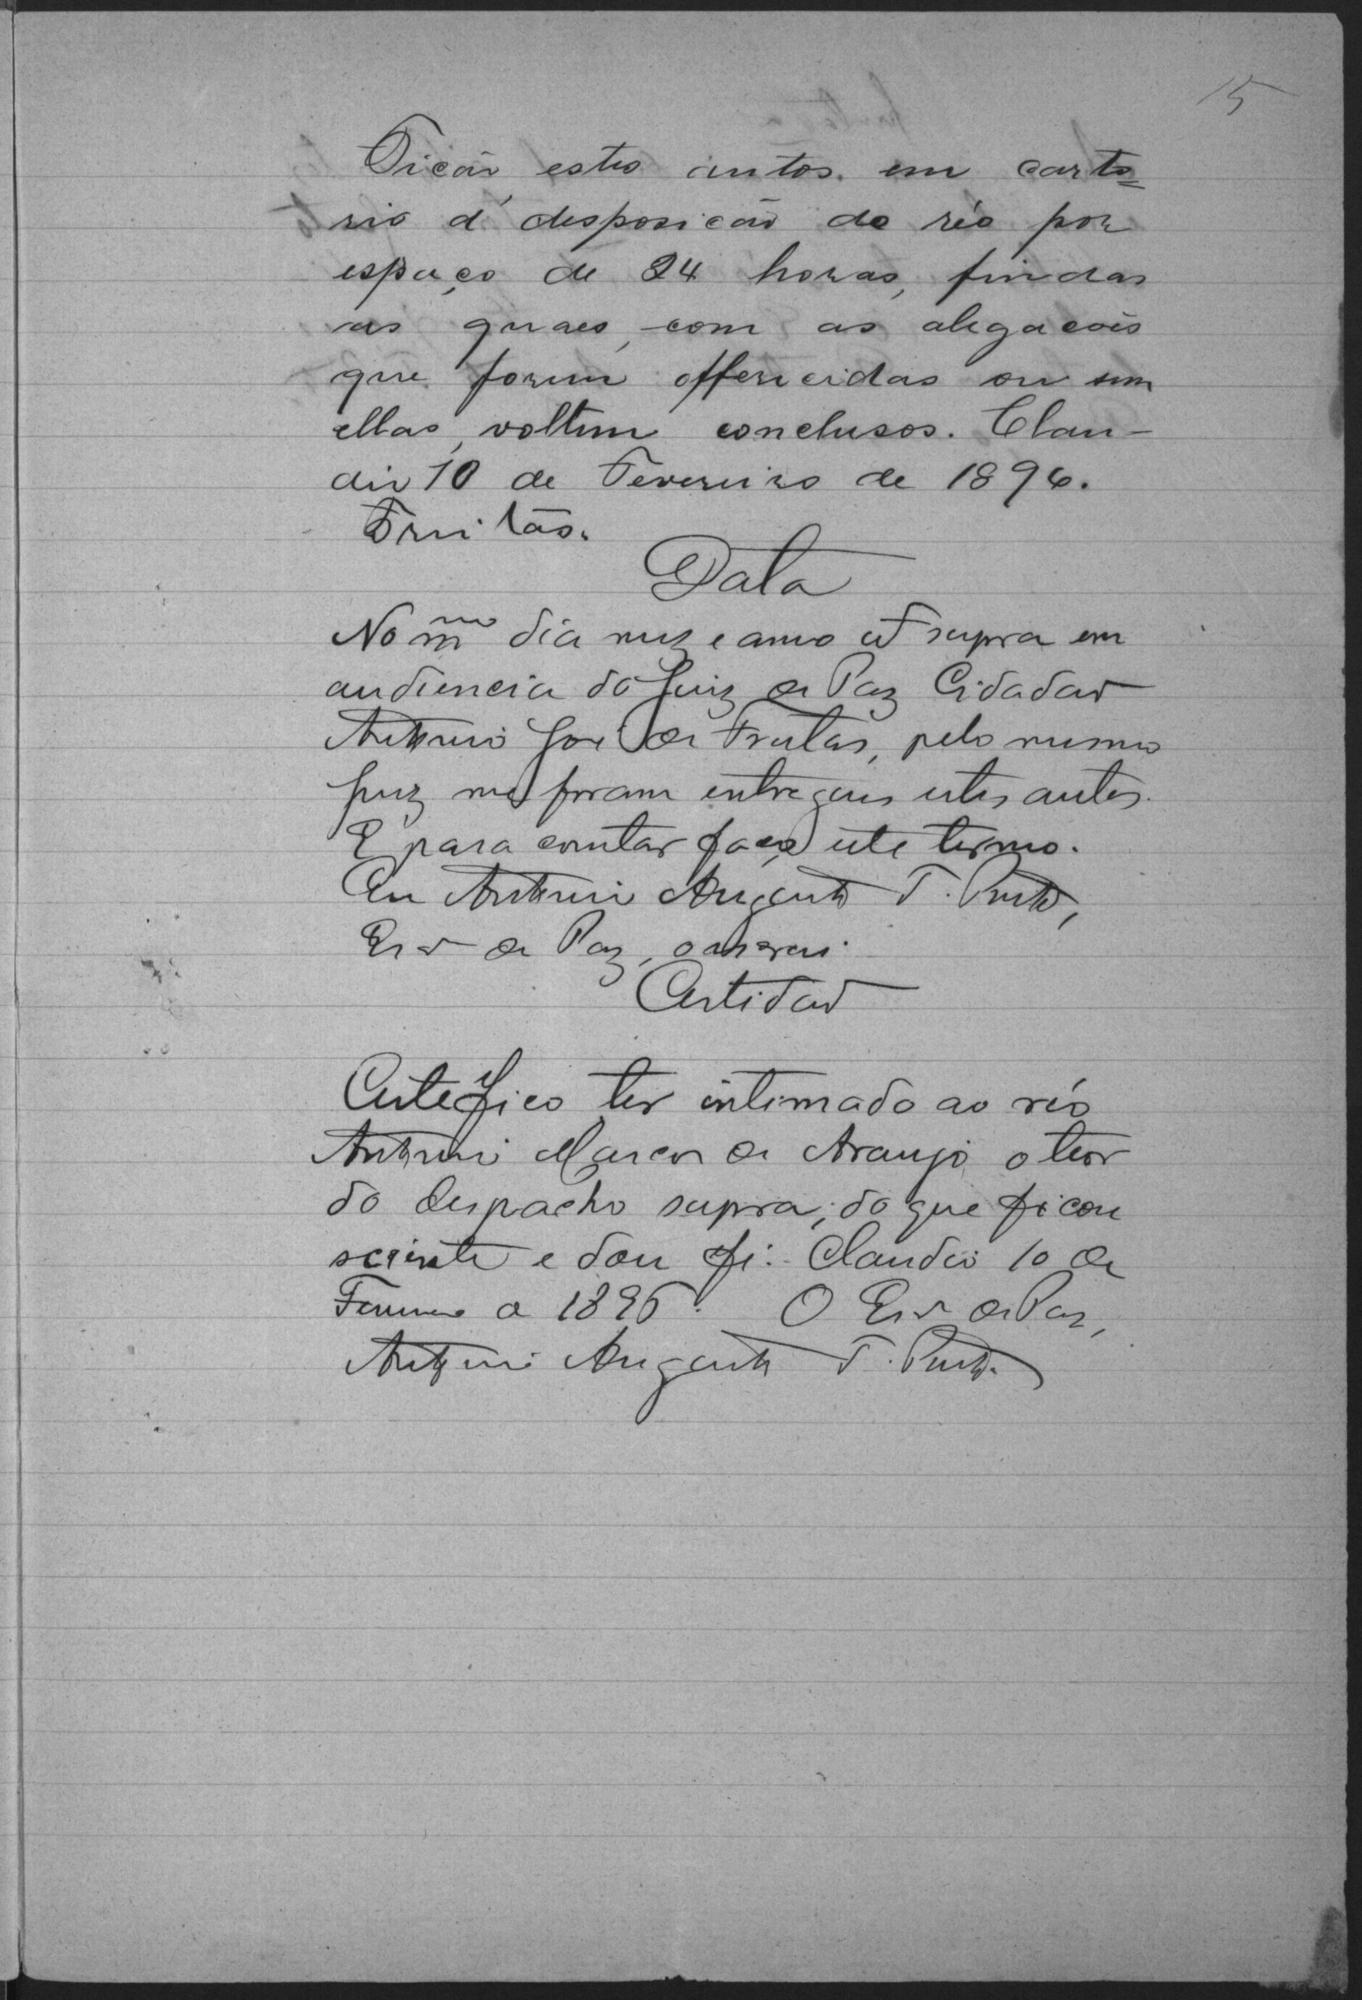 15
Ficão estes autos em carto=
rio á desposicão do réo por
espaço de 24 horas, findas
as quaes, com as alegacois
que forem offerecidas ou sem
ellas, voltem conclusos. Clau-
dio 10 de Fevereiro de 1896.
Freitas.
Data
No mmo dia mez e anno ut supra em
audiencia do Juiz de Paz Cidadão
Antonio José de Freitas, pelo mesmo
Juiz me foram entregues estes autos.
E para constar faço este termo.
Eu Antonio Augusto T. Porto,
Escr de Paz, o escrevi.
Certidão
Certefico ter intimado ao réo
Antonio Marcos de Araujo o teor
do despacho supra, do que ficou
sciente e dou fé. Claudio 10 de
Fevereiro de 1896. O Escr de Paz,
Antonio Augusto T. Porto.